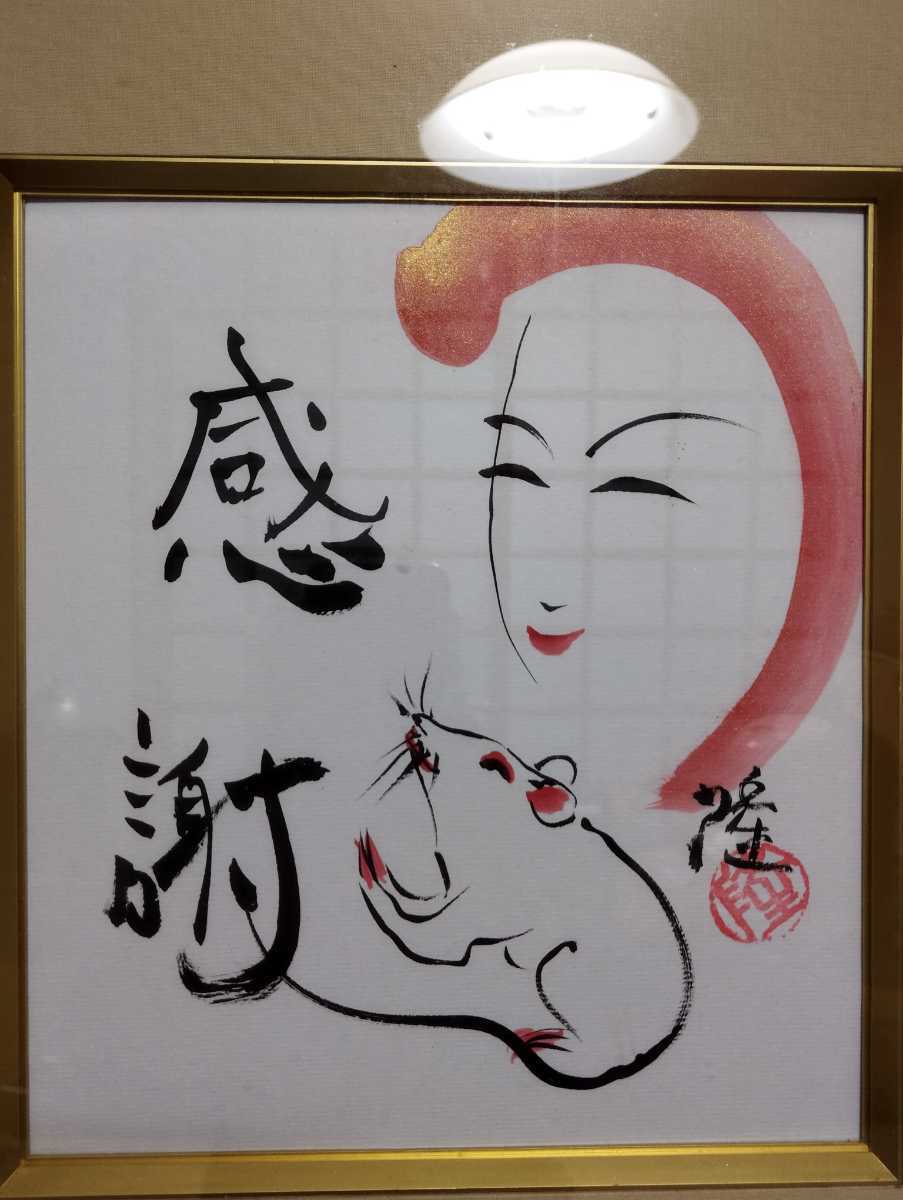 感
謝
隆